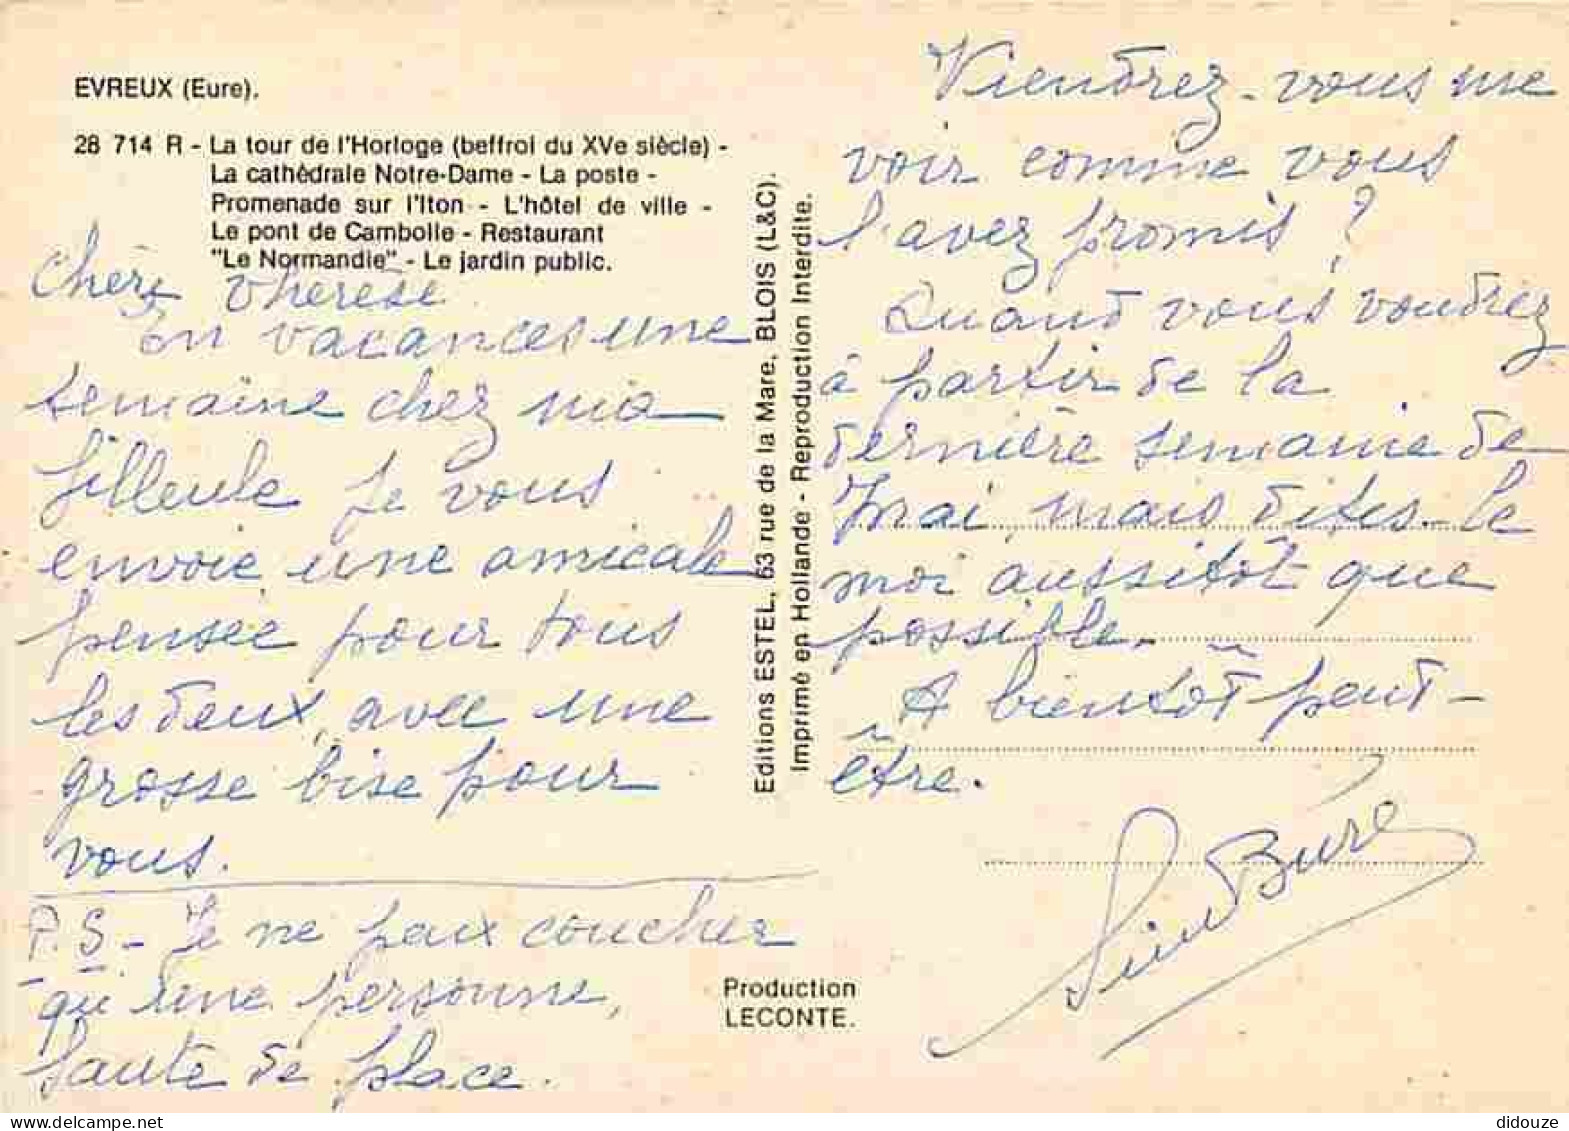 EVREUX (Eure).
28 714 R - La tour de l'Horloge (beffroi du XVe siècle) -
La cathédrale Notre-Dame - La poste -
Promenade sur l'Iton - L'hôtel de ville -
Le pont de Cambolle - Restaurant
"Le Normandie" - Le jardin public.
Chère Thérèse
En vacances une
semaine chez ma
filleule je vous
envoie une amicale
pensée pour tous
les deux, avec une
grosse bise pour
vous.
P.S - Je ne peux coucher
qu'une personne,
faute de place.
Editions ESTEL, 63 rue de la Mare, BLOIS (L&C).
Imprimé en Hollande - Reproduction Interdite.
Production
LECONTE.
Viendrez-vous me
voir comme vous
l'avez promis ?
Quand vous voudrez
à partir de la
dernière semaine de
Mai, mais dites-le
moi aussitôt que
possible.
A bientôt peut-
être.
didouze